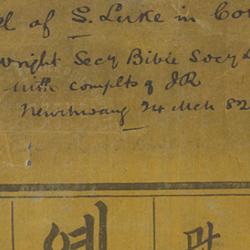 el of S. Luke in Co
wright Secy Bible Socy
with complts of JR
Newchwang 24 Mch 82
예 막